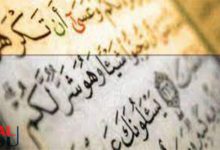 وَعَسَىٰ أَن تَكْرَهُ
تُحِبُّوا شَيْئًا وَهُوَ شَرٌّ لَّكُمْ
يَسْأَلُونَكَ عَنِ